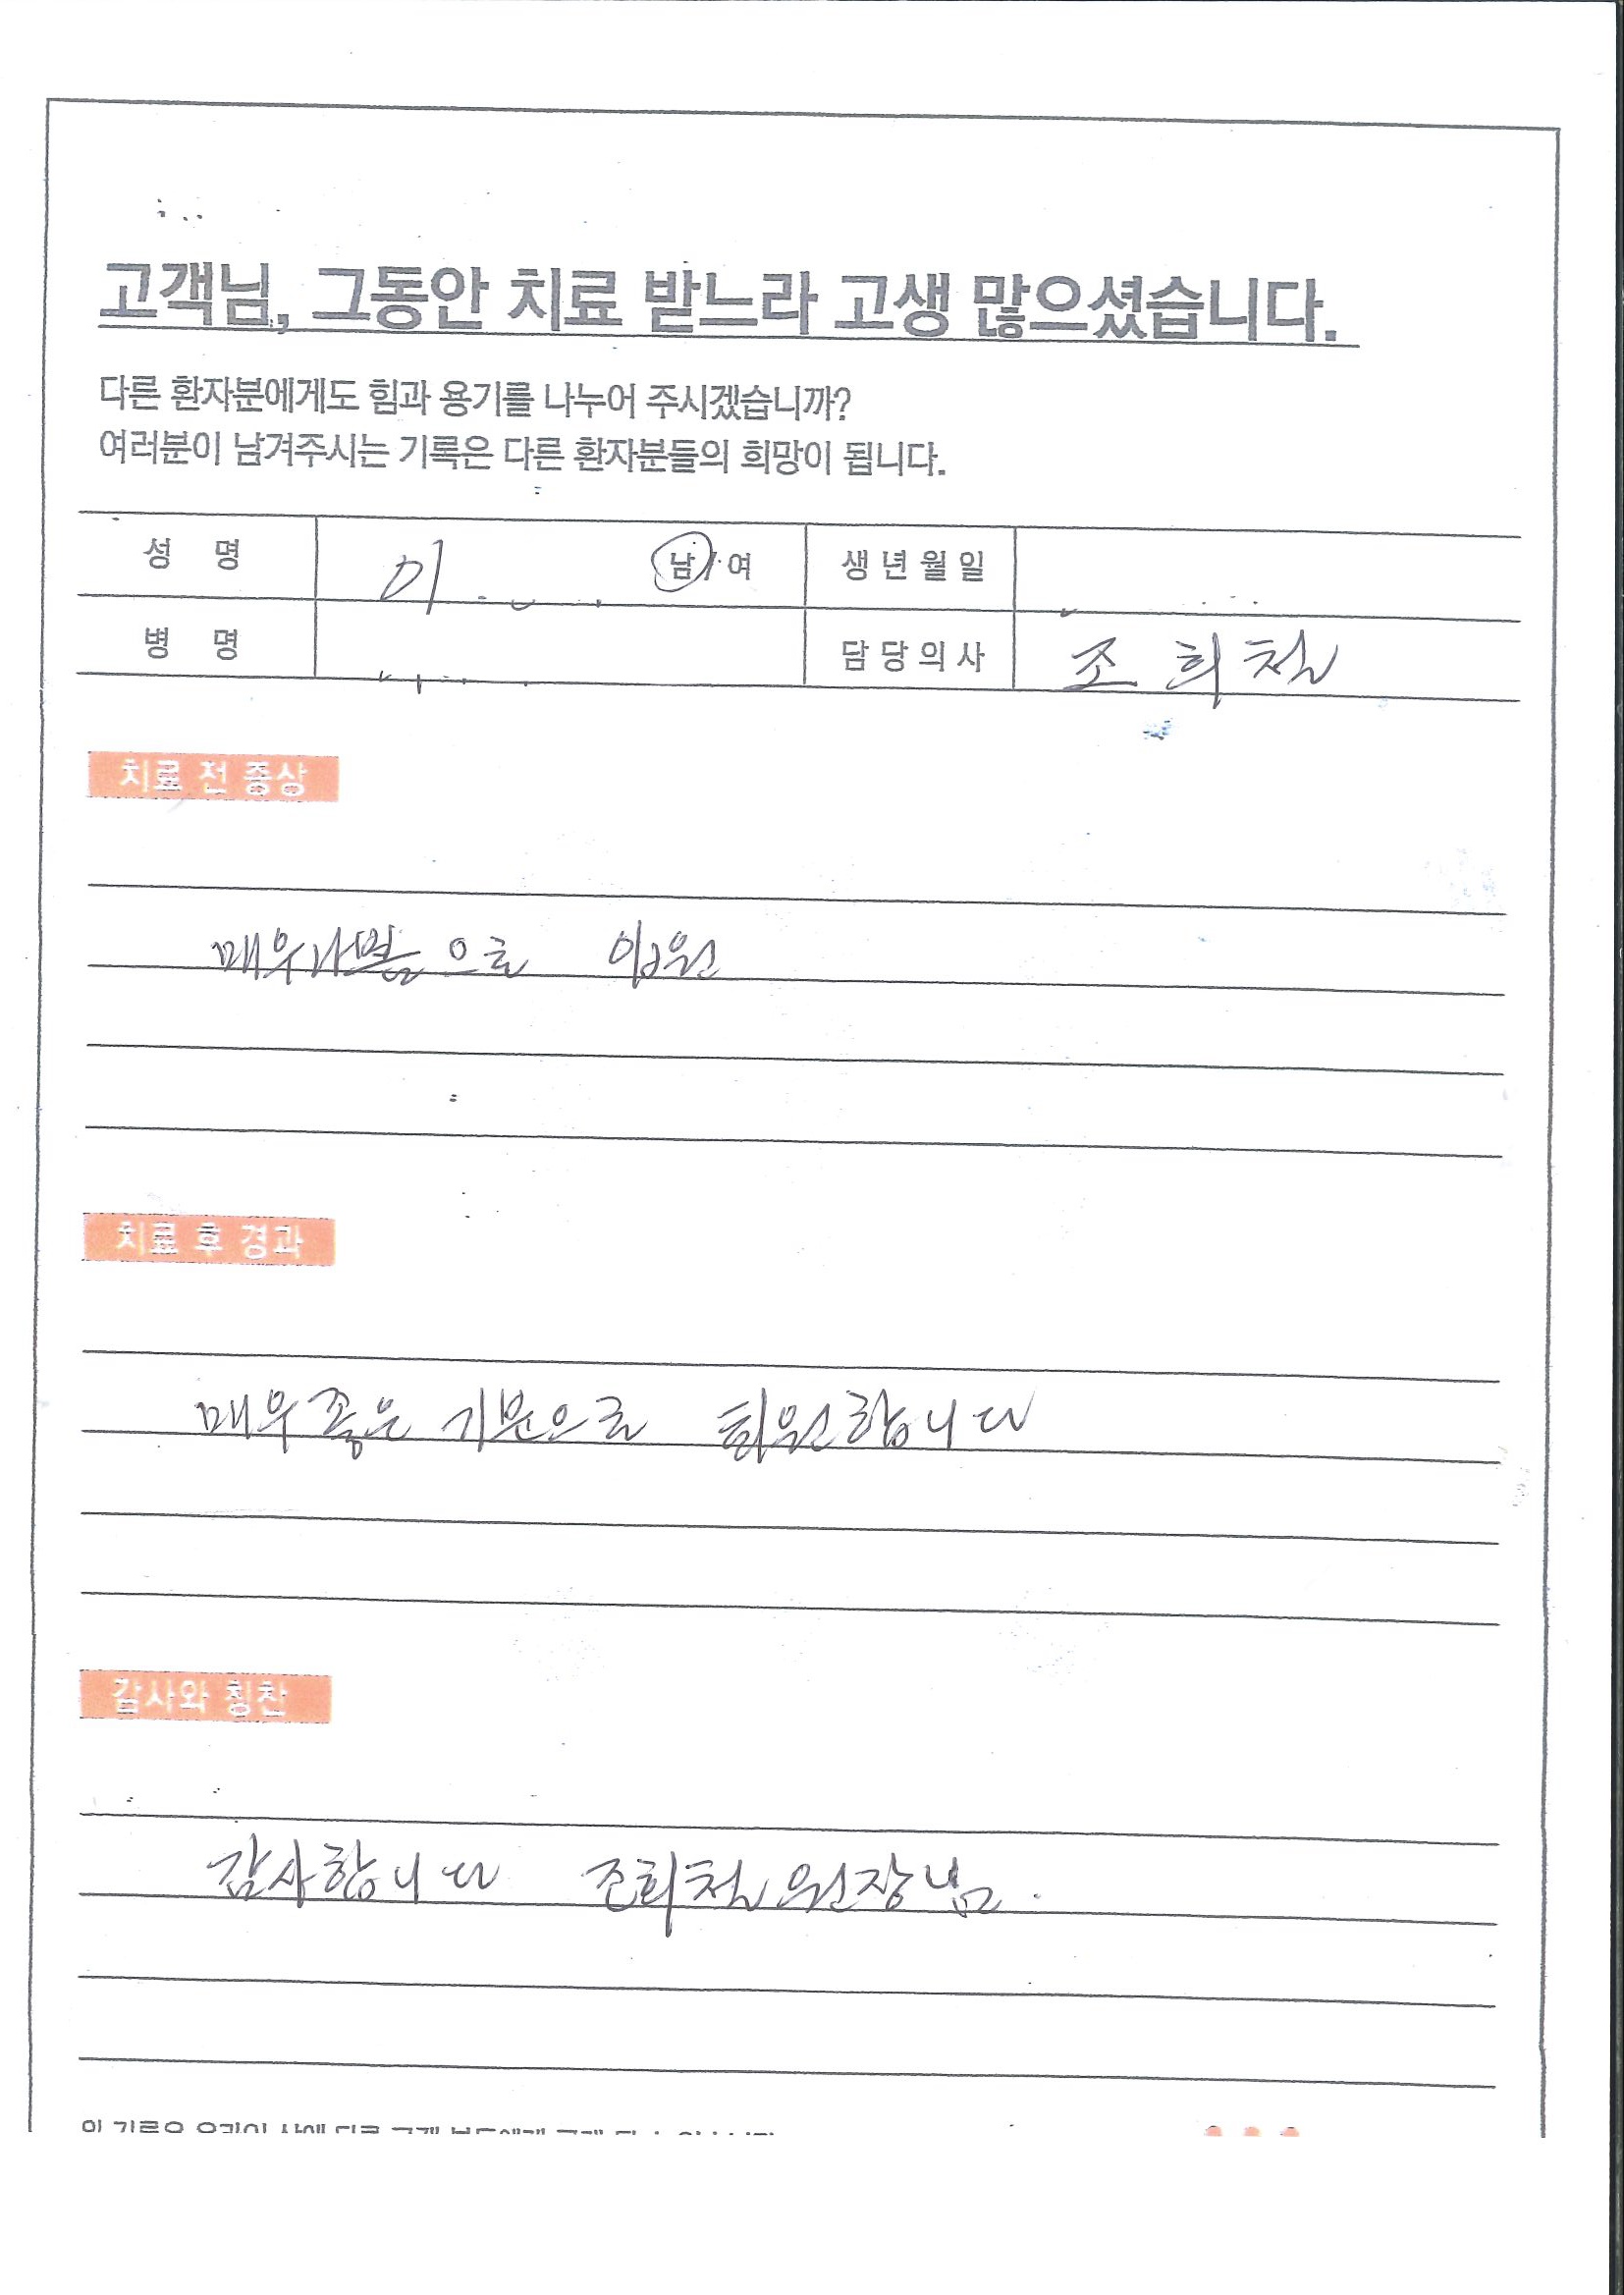 고객님, 그동안 치료 받느라 고생 많으셨습니다.
다른 환자분에게도 힘과 용기를 나누어 주시겠습니까?
여러분이 남겨주시는 기록은 다른 환자분들의 희망이 됩니다.
성 명 이 남/여 생년월일
병 명 담당의사 조희철
치료 전 증상
매우나쁨으로 입원
치료 후 경과
매우좋은 기분으로 퇴원합니다
감사와 칭찬
감사합니다 조희철원장님.